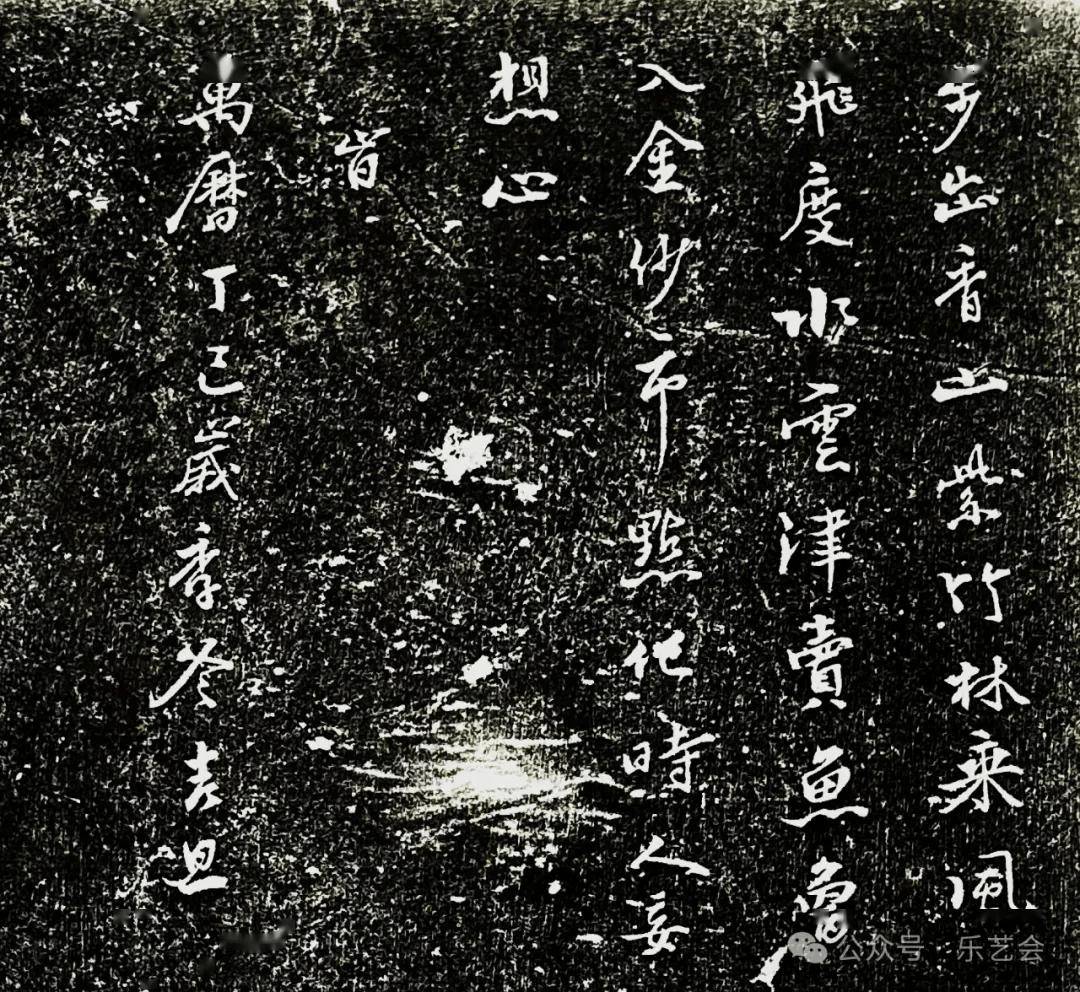 步出香山紫竹林乘風
飛度水雲津賣魚曾
入金沙市點化時人妄
想心
旹
萬曆丁巳歲季冬吉旦
公众号 · 乐艺会